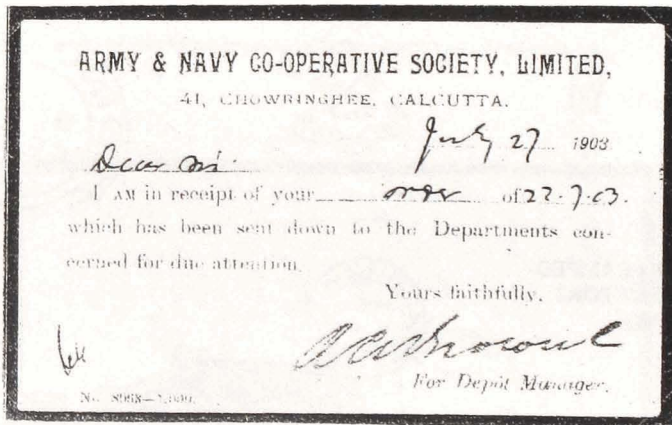 ARMY & NAVY CO-OPERATIVE SOCIETY, LIMITED,
41, CHOWRINGHEE, CALCUTTA.
July 27 1903
Dear Sir
I AM in receipt of your order of 22.7.03.
which has been sent down to the Departments con-
cerned for due attention.
Yours faithfully,
For Depôt Manager.
No. 8968—